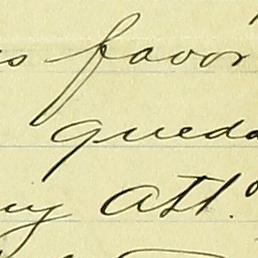 s favor
queda
uy Att.º